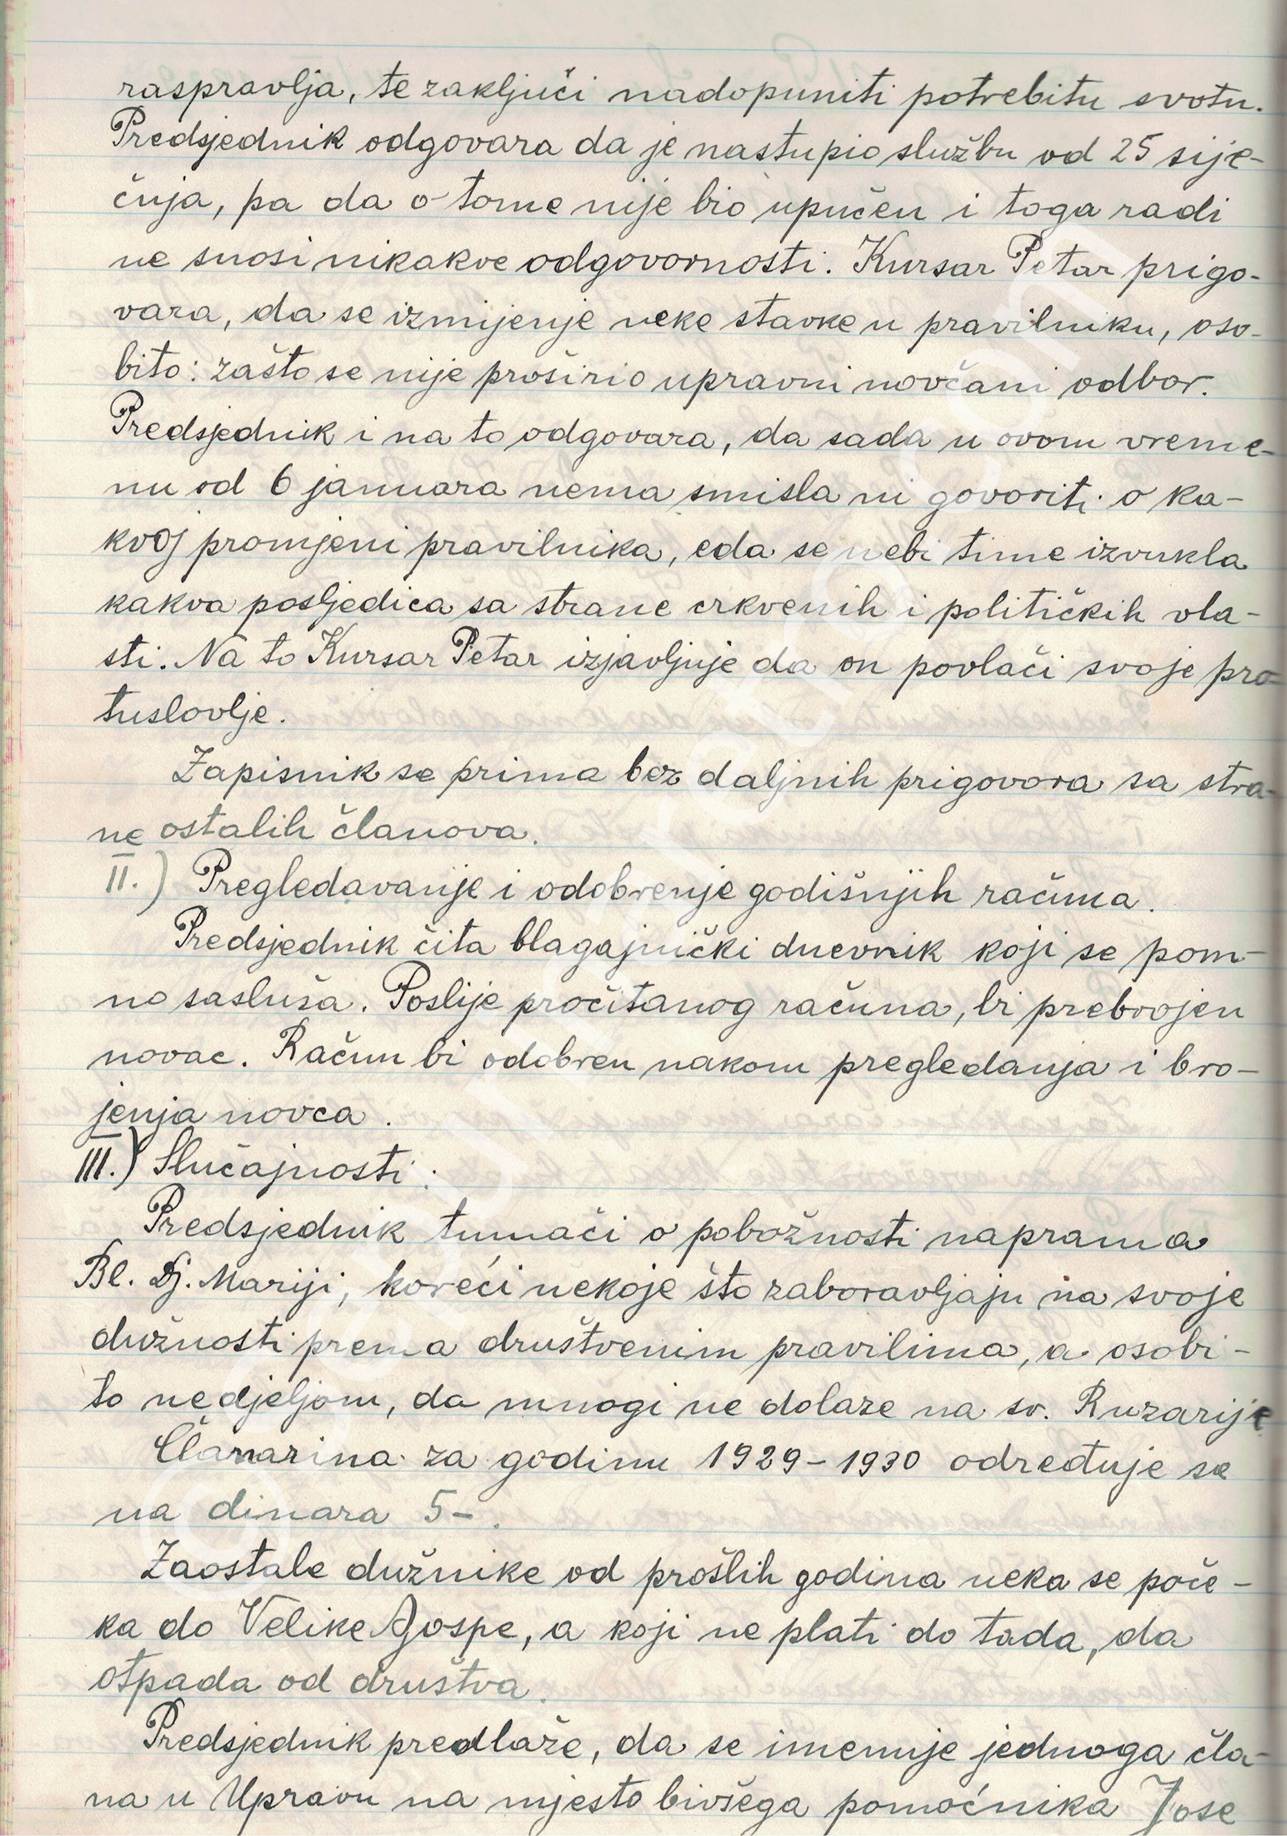 raspravlja, te zaključi nadopuniti potrebitu svotu.
Predsjednik odgovara da je nastupio službu od 25 sije-
čnja, pa da o tome nije bio upučen i toga radi
ne snosi nikakve odgovornosti. Kursar Petar prigo-
vara, da se izmijenje neke stavke u pravilniku, oso-
bito: zašto se nije proširio upravni novčani odbor.
Predsjednik i na to odgovara, da sada u ovom vreme-
nu od 6 januara nema smisla ni govoriti o ka-
kvoj promjeni pravilnika, eda se nebi time izvukla
kakva posljedica sa strane crkvenih i političkih vla-
sti. Na to Kursar Petar izjavljuje da on povlači svoje pro-
tuslovlje.
Zapisnik se prima bez daljnih prigovora sa stra-
ne ostalih članova.
II.) Pregledavanje i odobrenje godišnjih računa.
Predsjednik čita blagajnički dnevnik koji se pom-
no sasluša. Poslije pročitanog računa, bi prebrojen
novac. Račun bi odobren nakom pregledanja i bro-
jenja novca.
III.) Slučajnosti:
Predsjednik tumači o pobožnosti naprama
Bl. Dj. Mariji, koreći nekoje što zaboravljaju na svoje
dužnosti prema društvenim pravilima, a osobi-
to nedjeljom, da mnogi ne dolaze na sv. Ruzarije
Članarina za godinu 1929-1930 određuje se
na dinara 5-.
Zaostale dužnike od prošlih godina neka se poče-
ka do Velike Gospe, a koji ne plati do tada, da
otpada od društva.
Predsjednik predlaže, da se imenuje jednoga čla-
na u Upravu na mjesto bivšega pomoćnika Jose